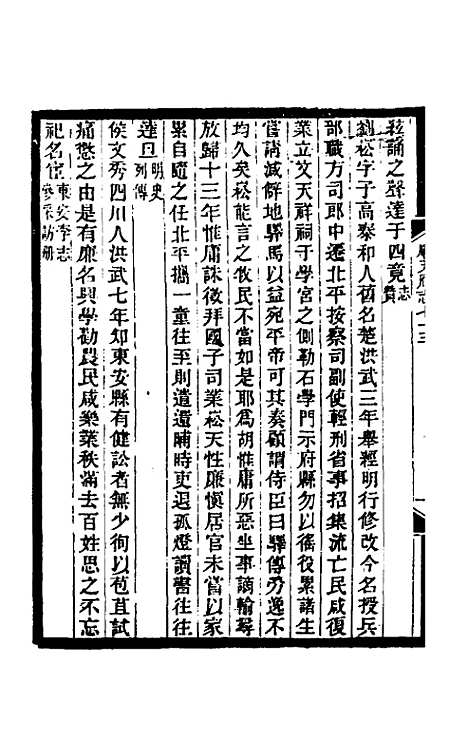 絃誦之聲達于四竟舊志
劉崧字子高泰和人舊名楚洪武三年舉經明行修改今名授兵
部職方司郎中遷北平按察司副使輕刑省事招集流亡民咸復
業立文天祥祠于學宮之側勒石學門示府縣勿以徭役累諸生
嘗請減僻地驛馬以益宛平帝可其奏顧謂侍臣曰驛傳勞逸不
均久矣崧能言之牧民不當如是耶爲胡惟庸所惡坐事謫輸尋
放歸十三年惟庸誅徵拜國子司業崧天性廉愼居官未嘗以家
累自隨之任北平攜一童往至則遣還晡時吏退孤燈讀書往往
達旦明史列傳
侯文秀四川人洪武七年知東安縣有健訟者無少徇以苞苴試
痛懲之由是有廉名興學勸農民咸樂業秩滿去百姓思之不忘
祀名宦東安李志參采訪冊
順天府志七十三